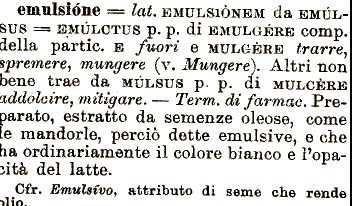 emulsióne = lat. EMULSIÓNEM da EMÚL-
SUS = EMÚLCTUS p. p. di EMULGÈRE comp.
della partic. E fuori e MULGÈRE trarre,
spremere, mungere (v. Mungere). Altri non
bene trae da MÚLSUS p. p. di MULCÈRE
addolcire, mitigare. — Term. di farmac. Pre-
parato, estratto da semenze oleose, come
le mandorle, perciò dette emulsive, e che
ha ordinariamente il colore bianco e l'opa-
cità del latte.
Cfr. Emulsívo, attributo di seme che rende
olio.